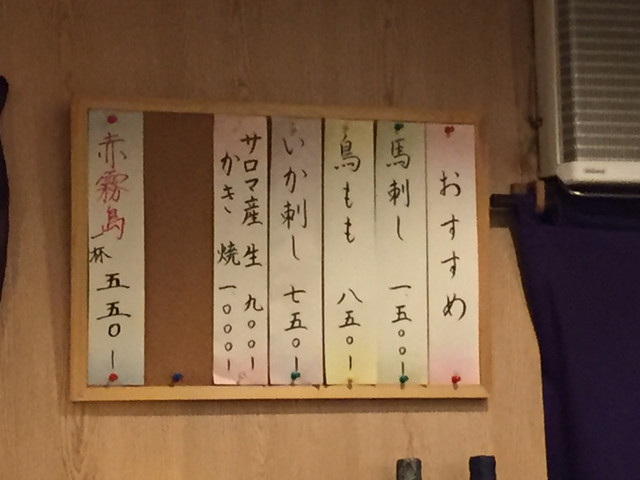 おすすめ
馬刺し 一五〇〇ー
鳥もも 八五〇ー
いか刺し 七五〇ー
サロマ産 生 九〇〇ー
かき 焼 一〇〇〇ー
赤霧島
一杯 五五〇ー